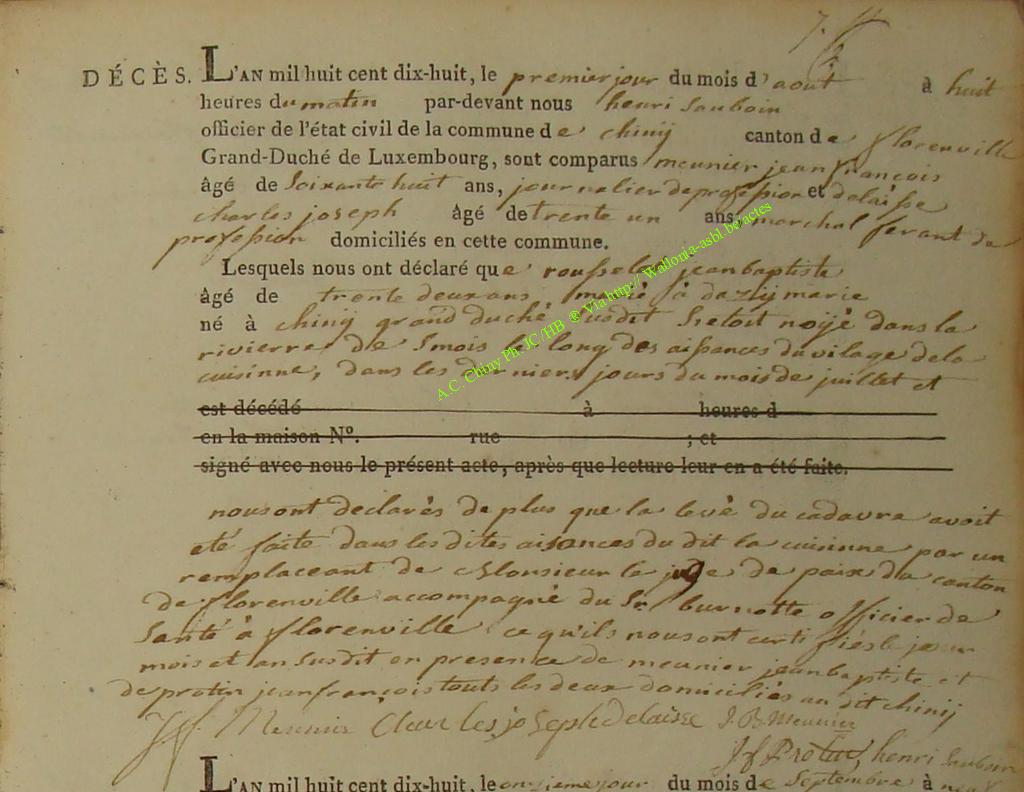 DÉCÈS. L'AN mil huit cent dix-huit, le premier jour du mois d'aout à huit
heures du matin par-devant nous henri Sauboin
officier de l'état civil de la commune de chinij canton de florenville
Grand-Duché de Luxembourg, sont comparus meunier jean françois
âgé de Soixante huit ans, journalier de profession et delaisse
charles joseph âgé de trente un ans, marchal ferant de
profession domiciliés en cette commune.
Lesquels nous ont déclaré que jean baptiste
âgé de trente deux ans, marié à dazij marie
né à chinij grand duché, Susdit Setoit noijé dans la
rivierre de Smois le long des aisances du vilage de la
cuisinne, dans les derniers jours du mois de juillet et
est décédé à heures d
en la maison N°. rue ; et
signé avec nous le présent acte, après que lecture leur en a été faite.
nous ont declarés de plus que la levé du cadavre avoit
eté faite dans les dites aisances du dit la cuisinne par un
remplaceant de Monsieur le juge de paix du canton
de florenville accompagné du Sr. burnotte officier de
Santé à florenville ce qu'ils nous ont certifiés le jour
mois et an Susdit en presence de meunier jean baptiste et
de protin jean françois touts les deux domiciliés au dit chinij
Meunier Charles joseph delaisse J. B. Meunier
J f Protin, henri Sauboin
L'AN mil huit cent dix-huit, le onzieme jour du mois de Septembre à neuf
A.C. Chiny Ph. JC/HB ® Via http:// Wallonia-asbl.be/actes